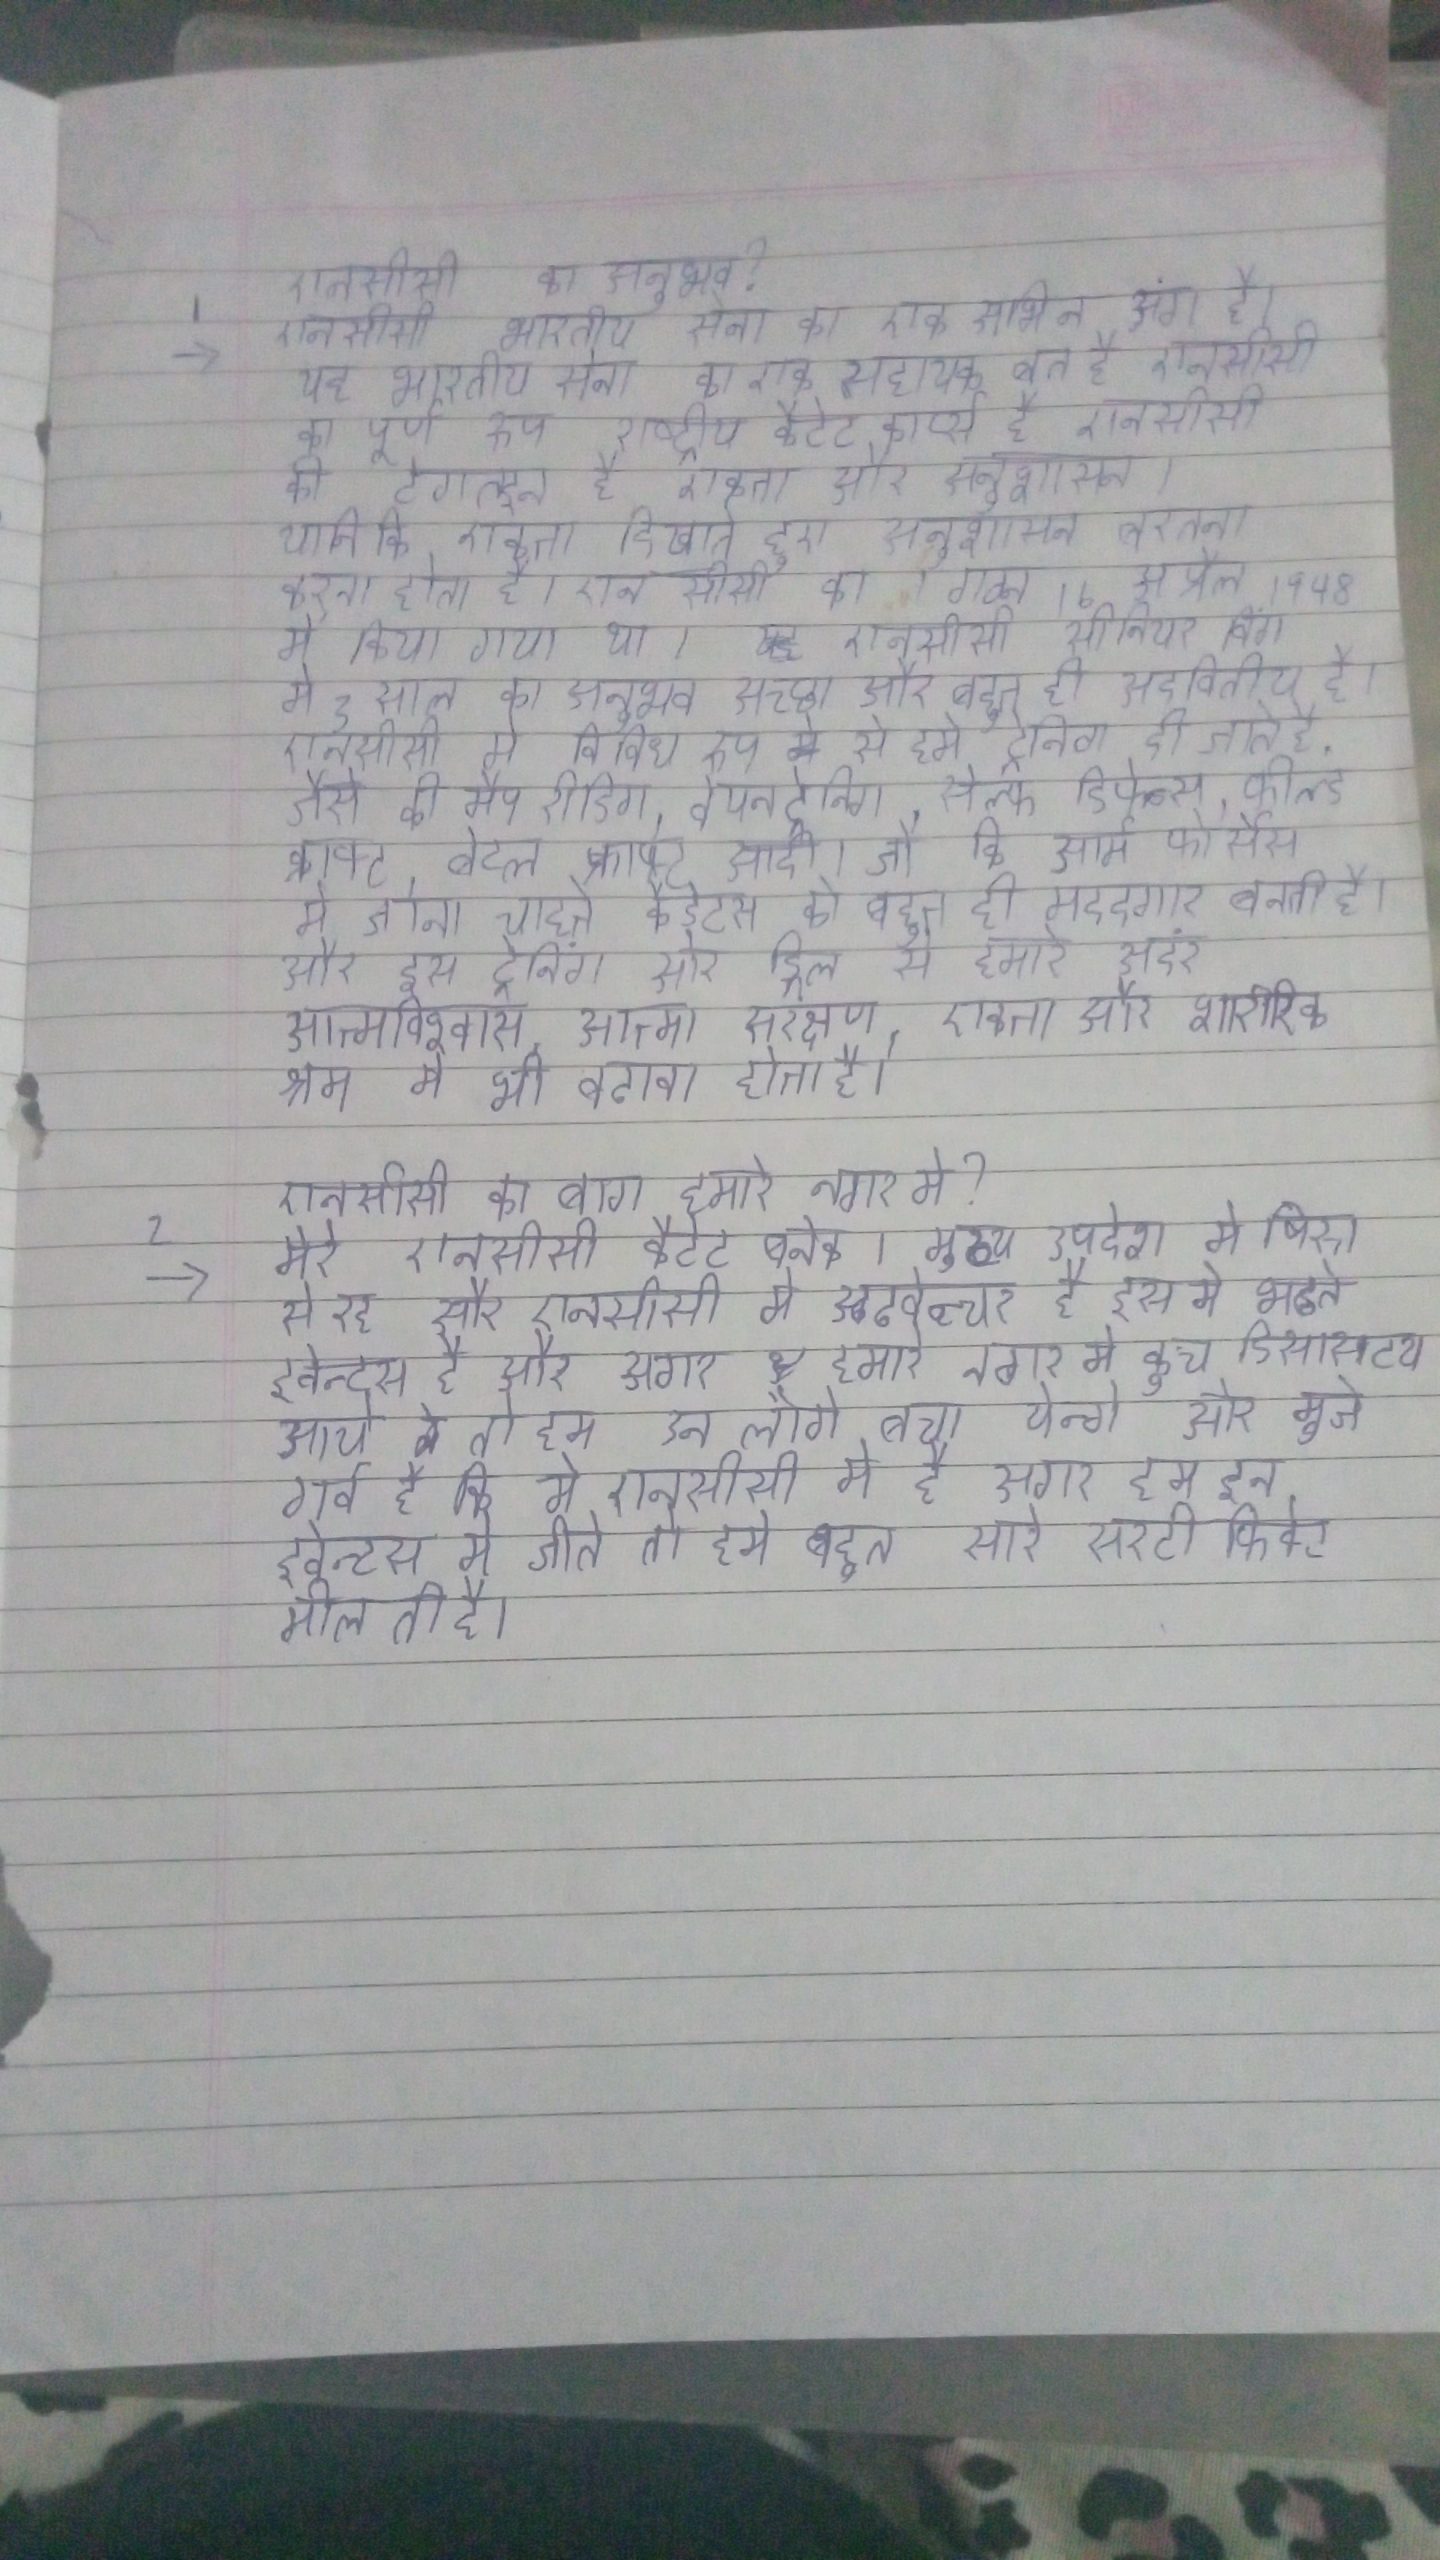 एनसीसी का अनुभव?
1 एनसीसी भारतीय सेना का एक अभिन अंग है।
→ यह भारतीय सेना का एक सहायक बल है एनसीसी
का पूर्ण रूप राष्ट्रीय कैटेट कार्प्स है एनसीसी
की टेगलाइन है एकता और अनुशासन।
यानि कि एकता दिखाते हुए अनुशासन बरतना
करना होता है। एन सीसी का गठन 16 अप्रैल 1948
में किया गया था। एनसीसी सीनियर विंग
मे 3 साल का अनुभव अच्छा और बहुत ही अदवितीय है।
एनसीसी मे विविध रूप से हमे ट्रेनिंग दी जाते है.
जैसे की मैप रीडिंग, वेपन ट्रेनिंग, सेल्फ डिफेन्स, फील्ड
क्राफ्ट, बेटल क्राफ्ट आदी। जो कि आर्म फोर्सेस
मे जाना चाहते कैडेटस को बहुत ही मददगार बनती है।
और इस ट्रेनिंग और ड्रिल से हमारे अदंर
आत्मविश्वास, आत्मा सरंक्षण, एकता और शारीरिक
श्रम मे भी बढावा होता है।
एनसीसी का बाग हमारे नगर मे?
2 मैरे एनसीसी कैटेट बनेक। मुख्य उपदेश मे
→ से रह और एनसीसी मे अढवेन्चर है इस मे भढते
इवेन्टस है और अगर हमारे नगर मे कुच
आये तो हम उन लोगो बचा येन्गे और मुजे
गर्व है कि मे एनसीसी मे है अगर हम इन
इवेन्टस मे जीते तो हमे बहुत सारे सरटी फिकेट
मील ती है।